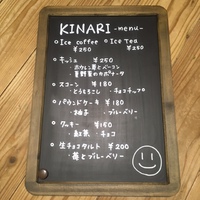 KINARI -menu-
○ Ice coffee ○ Ice Tea
¥250 ¥250
○ キッシュ ¥250
・ホウレン草とベーコン
・夏野菜のカポナータ
○ スコーン ¥180
・とうもろこし ・チョコチップ
○ パウンドケーキ ¥180
・柚子 ・ブルーベリー
○ クッキー ¥150
・紅茶 ・チョコ
○ 生チョコタルト ¥200
・苺とブルーベリー